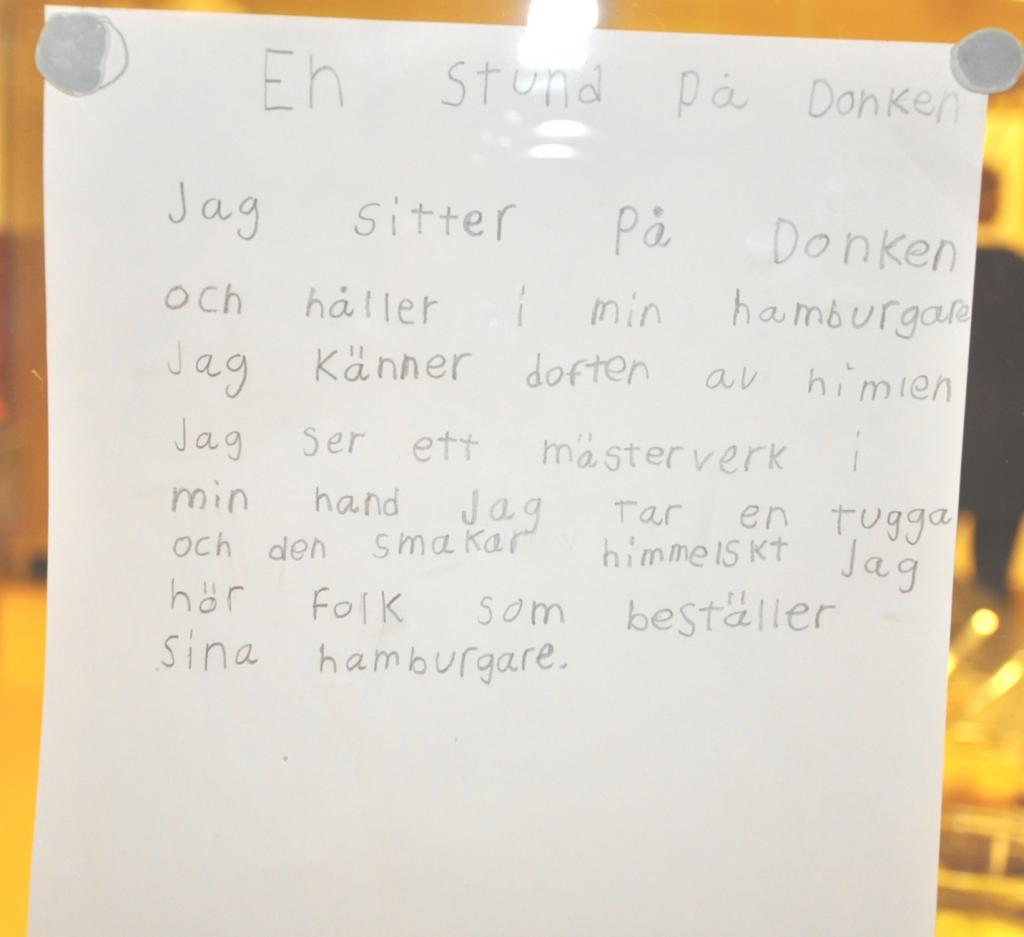 En stund på Donken
Jag sitter på Donken
och håller i min hamburgare
Jag känner doften av himlen
Jag ser ett mästerverk i
min hand Jag tar en tugga
och den smakar himmelskt Jag
hör folk som beställer
sina hamburgare.